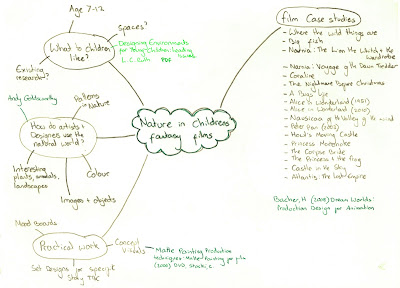 Age 7-12
Spaces?
What to children
like?
Designing Environments
for Young Children: Leading
Issues
PDF
Existing
research?
Patterns
in Nature
Andy Goldsworthy
How do artists +
Designers use the
natural world?
Interesting
plants, animals,
landscapes
Colour
Images + objects
Nature in Childrens
fantasy films
Mood Boards
Practical work
Concept
Visuals
Set Designs for specific
Story
Matte Painting Production
techniques: Matte Painting for film
(2000) DVD
film Case studies
- Where the wild things are
- Big fish
- Narnia: The Lion the Witch + the
wardrobe
- Narnia: Voyage of the Dawn Treader
- Coraline
- The Nightmare Before Christmas
- A Bugs Life
- Alice in Wonderland (1951)
- Alice in Wonderland (2010)
- Nausicaa of the Valley of the wind
- Peter Pan (2003)
- Howl's Moving Castle
- Princess Mononoke
- The Corpse Bride
- The Princess + the frog
- Castle in the Sky
- Atlantis: The Lost Empire
Bacher, H (2008) Dream Worlds:
Production Design for Animation